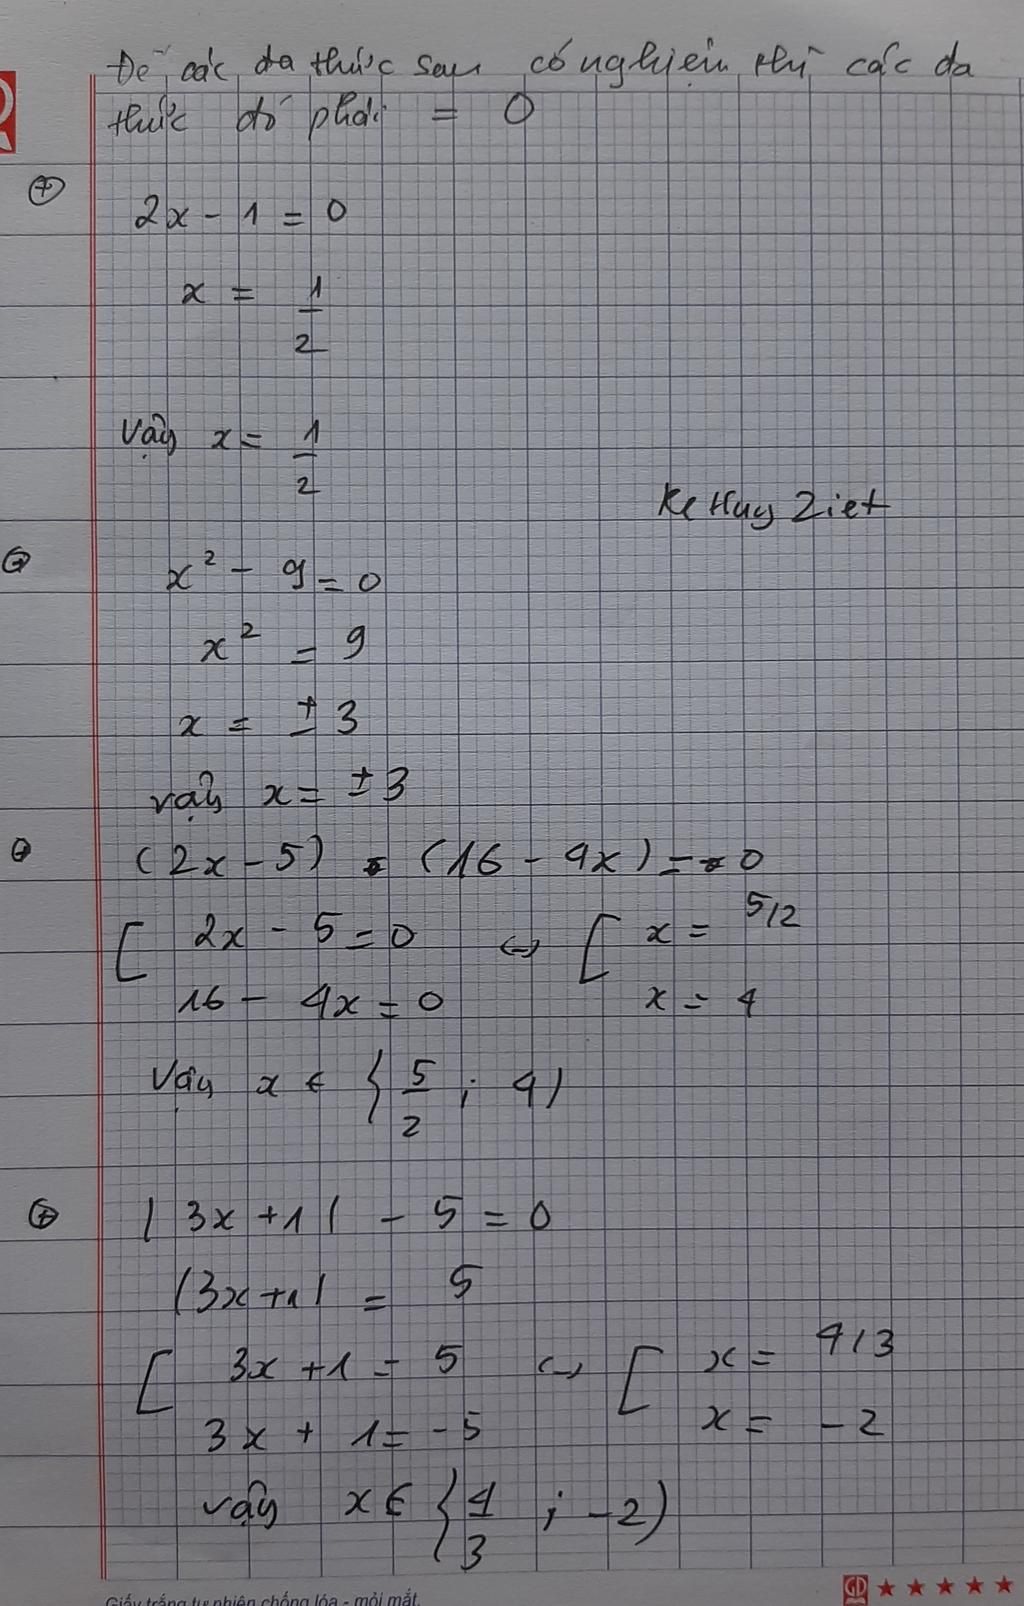 Để các đa thức sau có nghiệm thì các đa
thức đó phải = 0
2x - 1 = 0
x = 1/2
Vậy x = 1/2
x² - 9 = 0
x² = 9
x = ± 3
vậy x = ± 3
(2x - 5) . (16 - 4x) = 0
[ 2x - 5 = 0 ⇔ [ x = 5/2
16 - 4x = 0 x = 4
Vậy x ∈ { 5/2 ; 4 }
| 3x + 1 | - 5 = 0
|3x+1| = 5
[ 3x + 1 = 5 ⇔ [ x = 4/3
3x + 1 = -5 x = -2
vậy x ∈ { 4/3 ; -2 )
Giấy trắng tự nhiên chống lóa - mỏi mắt.
GD